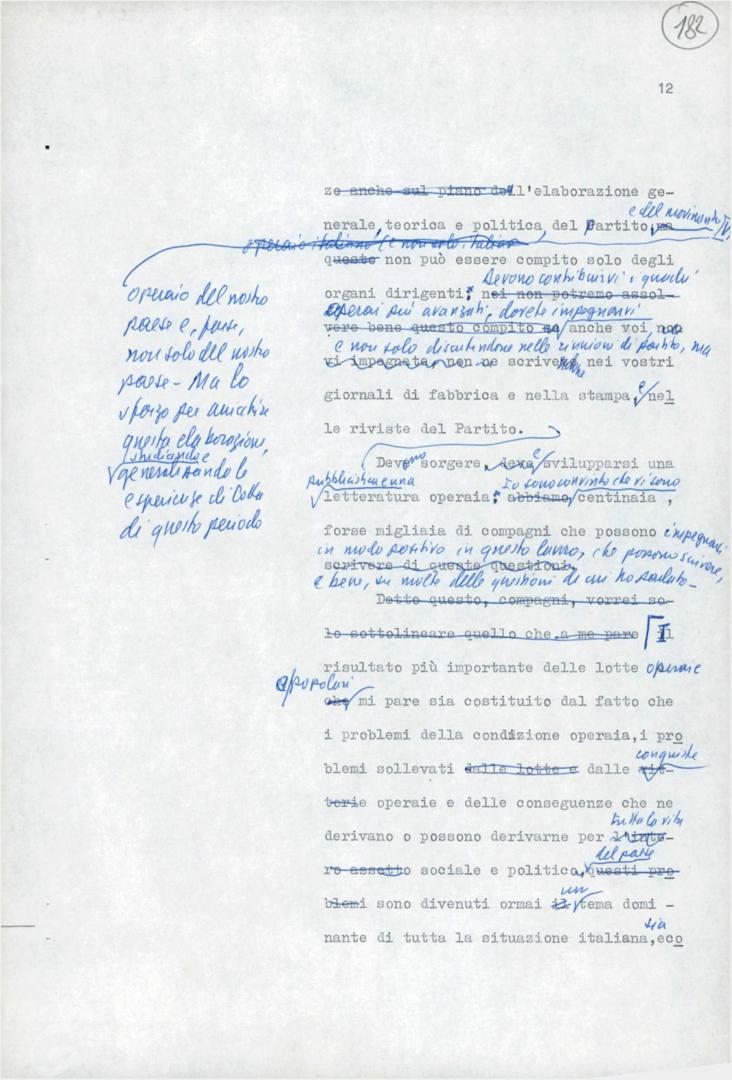 182
12
ze anche sul piano dell'elaborazione ge-
e del movimento
nerale, teorica e politica, del Partito, ma
operaio italiano (e non solo italiano
questo non può essere compito solo degli
Devono contribuirvi i quadri
organi dirigenti; noi non potremo assol-
operai più avanzati, dovete impegnarvi
vere bene questo compito se anche voi, non
e non solo discutendone nelle riunioni di partito, ma
vi impegnate, non ne scrivete nei vostri
giornali di fabbrica e nella stampa, e nel
le riviste del Partito.
operaio del nostro
paese e, forse,
non solo del nostro
paese - Ma lo
sforzo per arricchire
questa elaborazione,
studiando e
generalizzando le
esperienze di lotta
di questo periodo
Devono sorgere, deve e svilupparsi una
pubblicistica e una
Io sono convinto che vi sono
letteratura operaia; abbiamo centinaia,
forse migliaia di compagni che possono impegnarsi
in modo positivo in questo lavoro, che possono scrivere,
scrivere di queste questioni.
e bene, su molte delle questioni di cui ho parlato -
Detto questo, compagni, vorrei so-
lo sottolineare quello che a me pare Il
risultato più importante delle lotte operaie
e popolari
che mi pare sia costituito dal fatto che
i problemi della condizione operaia, i pro
conquiste
blemi sollevati dalle lotte e dalle vit-
torie operaie e delle conseguenze che ne
tutta la vita
derivano o possono derivarne per l'inte-
del paese
ro assetto sociale e politico, questi pro
un
blemi sono divenuti ormai il tema domi -
sia
nante di tutta la situazione italiana, eco